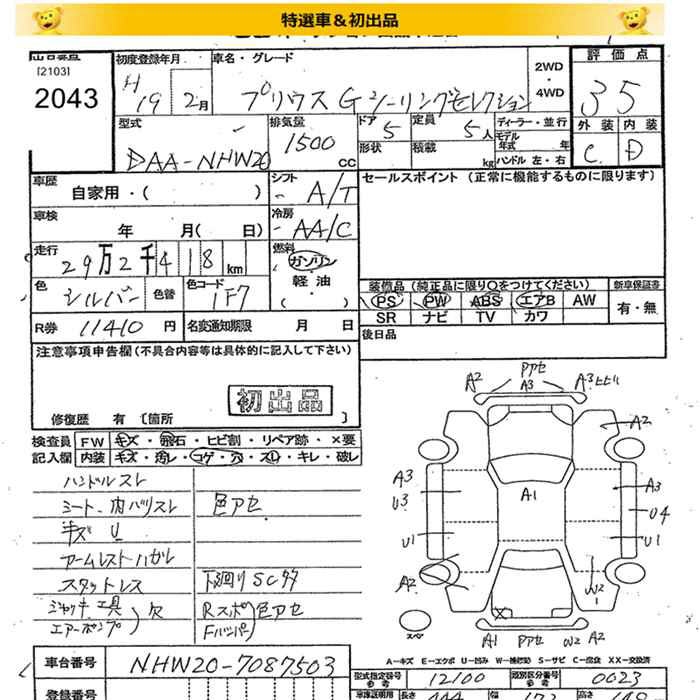 特選車＆初出品
[2103]
2043
初度登録年月
H19 2月
車名・グレード
プリウス Gツーリングセレクション
2WD
・
4WD
評価点
35
外装 内装
C D
型式
DAA-NHW20
排気量
1500 CC
ドア 5
定員 5人
形状
積載 kg
ディーラー・並行
モデル年式 年
ハンドル 左・右
車歴
自家用・( )
シフト
A/T
セールスポイント (正常に機能するものに限ります)
車検
年 月( 日)
冷房
AA/C
走行
29万2千418km
燃料
ガソリン
軽油
色 シルバー
色替
色コード 1F7
装備品 (純正品に限り○をつけてください)
新車保証書
PS PW ABS エアB AW
有・無
SR ナビ TV カワ
R券 11410 円
名変通知期限 月 日
後日品
注意事項申告欄 (不具合内容等は具体的に記入して下さい)
初出品
修復歴 有 [箇所 ]
検査員
記入欄
FW キズ・飛石・ヒビ割・リペア跡・×要
内装 キズ・汚レ・コゲ・穴・スレ・キレ・破レ
ハンドルスレ
シート、内バリスレ 色アセ
キズ U
アームレストハガレ
スタットレス 下廻りSCサ
ジャッキ 工具
エアーポンプ
欠
Rスポ
Fバンパー
色アセ
A2 Pアセ A3 A3ヒビリ
A2
A1
A3
U3
A3
U4
U1
U1
A2
W2
1
スペア
A1 Pアセ W2 A2
A-キズ E-エクボ U-凹ミ W-補修跡 S-サビ C-腐食 XX-交換済
車台番号 NHW20-7087503
型式指定番号 12100
類別区分番号 0023
登録番号
長さ 444 幅 172 高さ 149